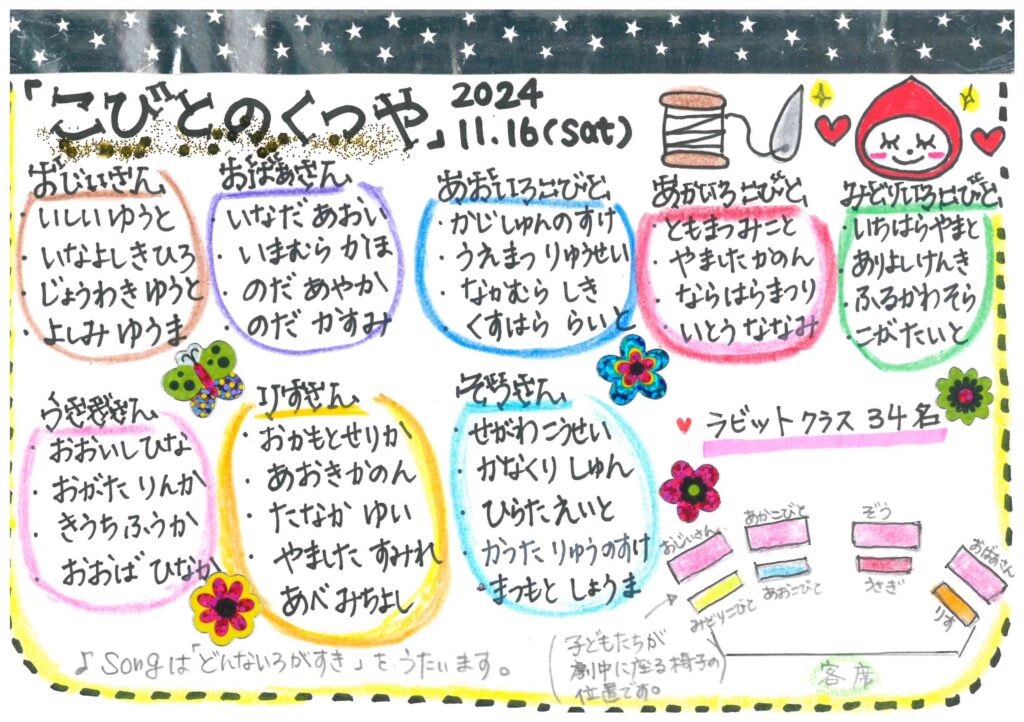 「こびとのくつや」
2024
11.16(Sat)
おじいさん
・いしい ゆうと
・いなよしきひろ
・じょうわき ゆうと
・よしみ ゆうま
おばあさん
・いなだ あおい
・いまむら かほ
・のだ あやか
・のだ かすみ
あおいろこびと
・かじ しゅんのすけ
・うえまつ りゅうせい
・なかむら しき
・くすはら らいと
あかいろこびと
・ともまつ みこと
・やました かのん
・ならはら まつり
・いとう ななみ
みどりいろこびと
・いちはら やまと
・ありよし けんき
・ふるかわ そら
・こが たいと
うさぎさん
・おおいし ひな
・おがた りんか
・きうち ふうか
・おおば ひなか
りすさん
・おかもと せりか
・あおき かのん
・たなか ゆい
・やました すみれ
・あべ みちよし
ぞうさん
・せがわ こうせい
・かなくり しゅん
・ひらた えいと
・かつた りゅうのすけ
・まつもと しょうま
♥ ラビットクラス 34名
おじいさん
あかこびと
ぞう
おばあさん
みどりこびと
あおこびと
うさぎ
りす
客席
(子どもたちが
劇中に座る椅子の
位置です。)
♪ Songは「どんないろがすき」をうたいます。